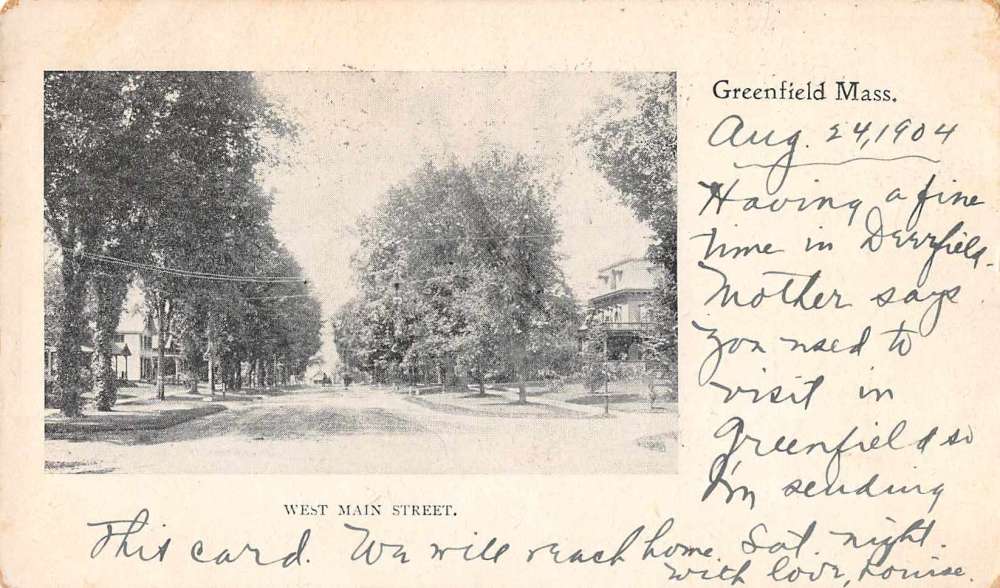 Greenfield Mass.
Aug. 24, 1904
Having a fine
time in Deerfield.
Mother says
you used to
visit in
Greenfield so
I'm sending
WEST MAIN STREET.
This card. We will reach home. Sat. night.
with love, Louise.